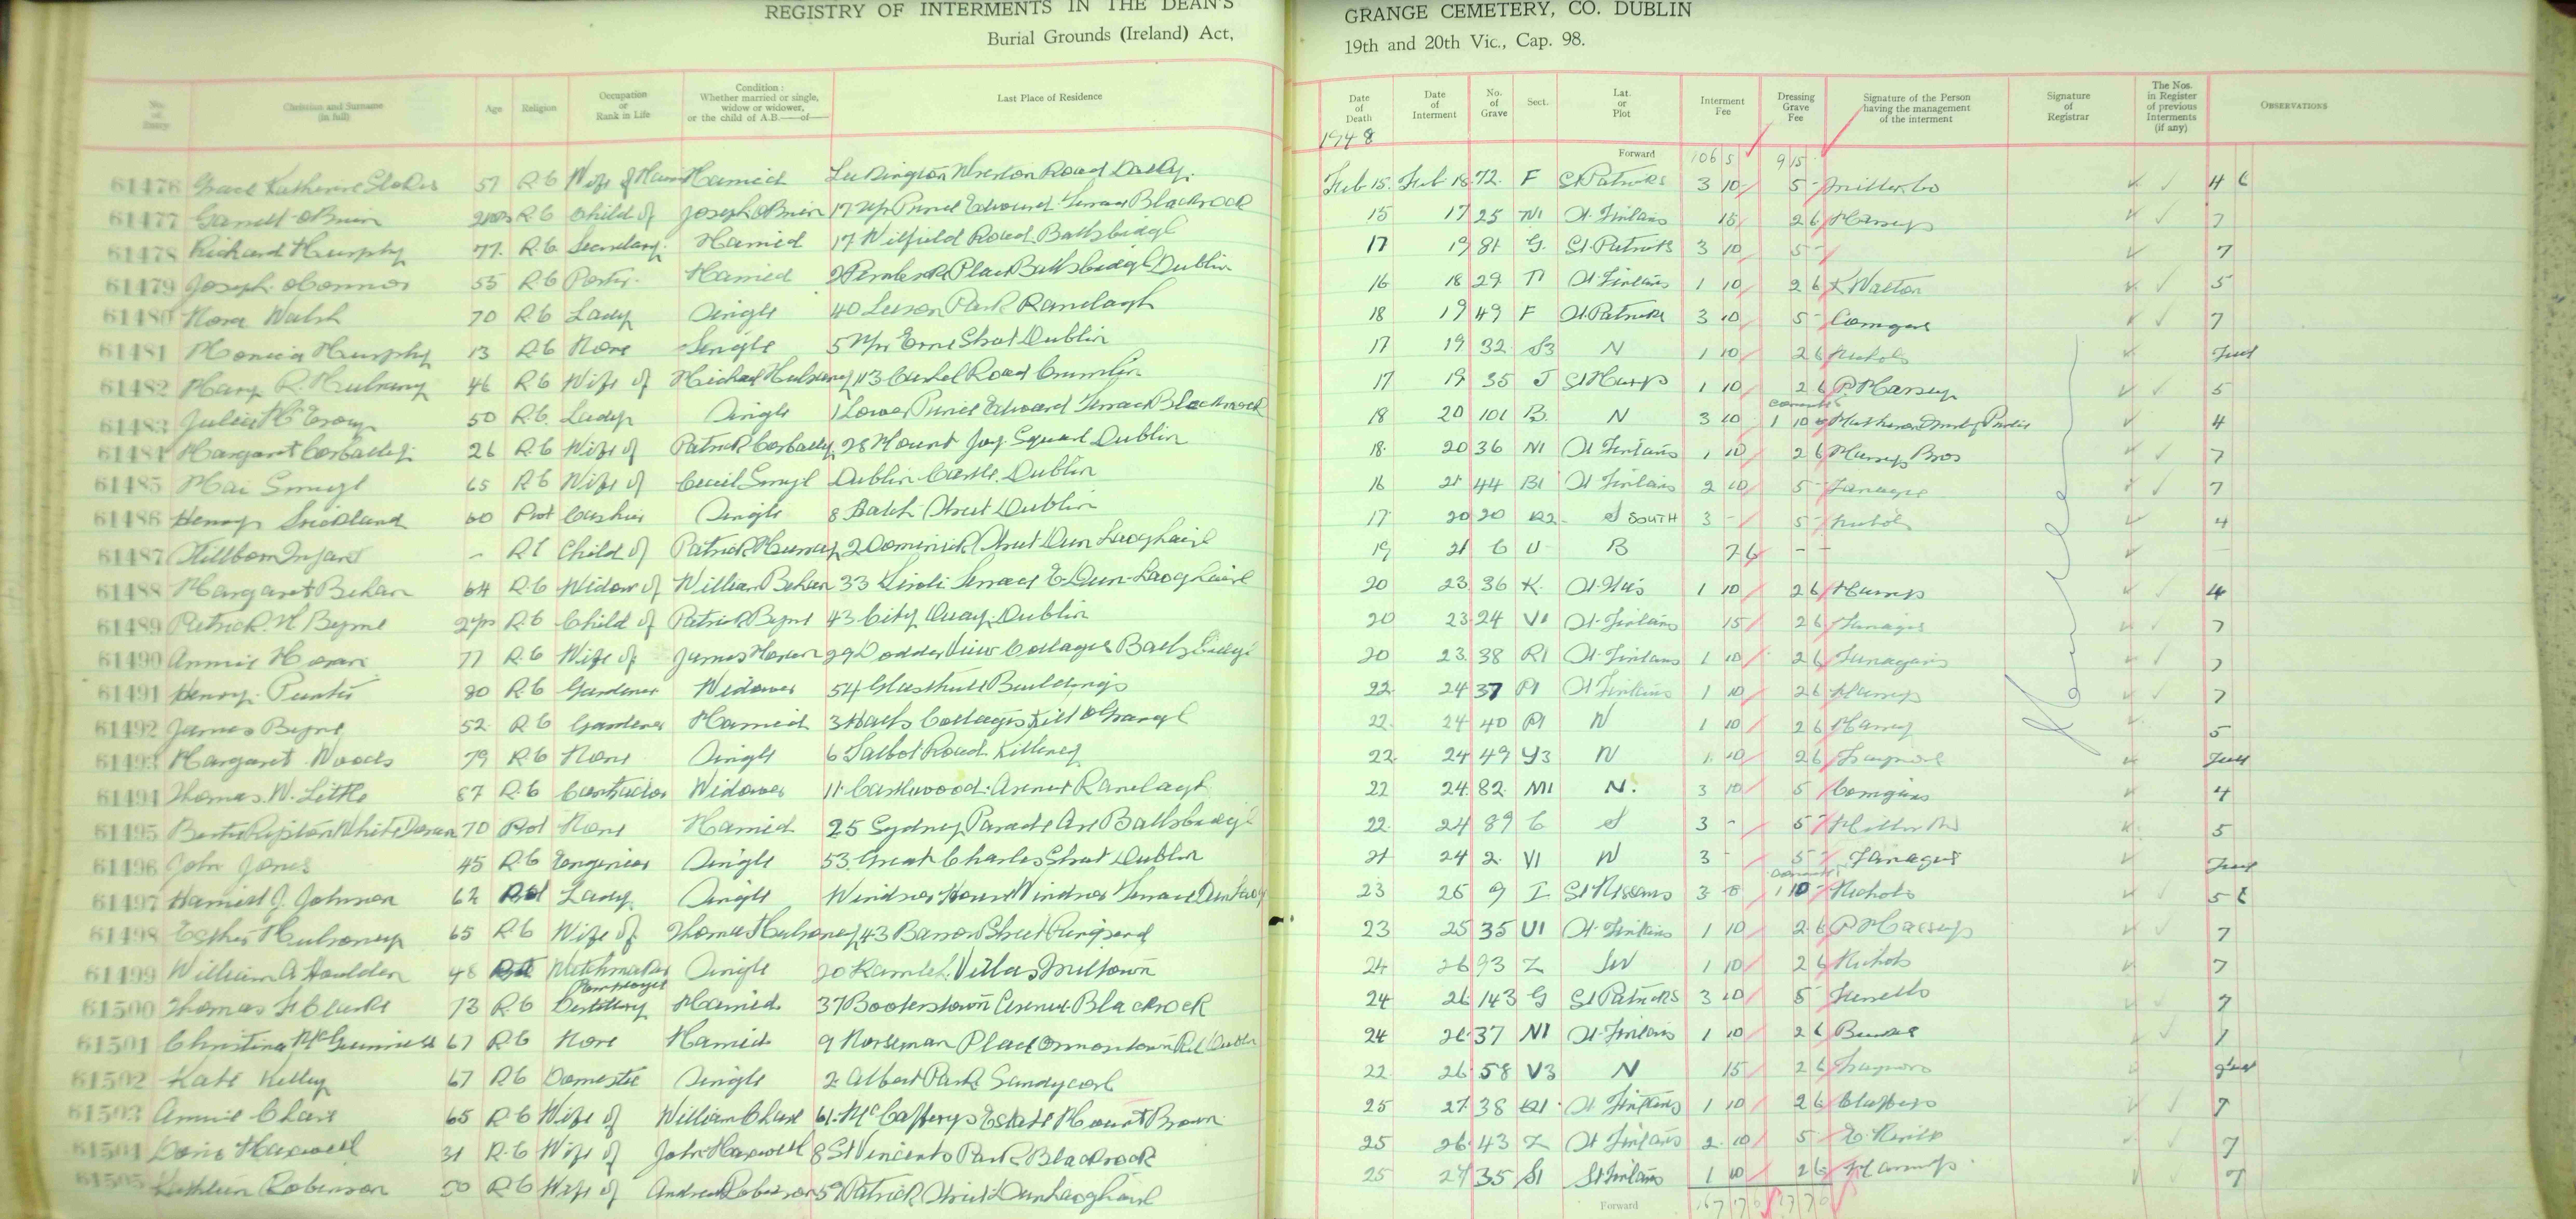 REGISTRY OF INTERMENTS IN THE DEAN'S GRANGE CEMETERY, CO. DUBLIN
Burial Grounds (Ireland) Act, 19th and 20th Vic., Cap. 98.
No. of Entry Christian and Surname (in full) Age Religion Occupation or Rank in Life Condition: Whether married or single, widow or widower, or the child of A.B.—of— Last Place of Residence Date of Death Date of Interment No. of Grave Sect. Lat. or Plot Interment Fee Dressing Grave Fee Signature of the Person having the management of the interment Signature of Registrar The Nos. in Register of previous Interments (if any) OBSERVATIONS
1948
Forward 106 5 9 15
61476 Grace Katherine Stokes 57 R.C Wife of Married Road Dalky. Feb 15. Feb 18. 72. F St Patricks 3 10 5 - Miller Co 4 6
61477 Garrett O'Brien R.C Child of Joseph O'Brien 17 Upr Prince Edward Terrace Blackrock 15 17 25 N1 St. Fintans 15 2 6 7
61478 Richard Murphy 77. R.C Secretary. Married 17 Wilfield Road. Ballsbridge 17 19 81 G. St. Patricks 3 10 5 - 7
61479 Joseph O'Connor 55 R.C Porter. Married 2 Pembroke Place Ballsbridge Dublin 16 18 29 St. Fintans 1 10 2 6 Walton 5
61480 Nora Walsh 70 R.C Lady Single 40 Leeson Park Ranelagh 18 19 49 F St. Patricks 3 10 5 - 7
61481 Monica Murphy 13 R.C None Single 5 Upr Erne Street Dublin 17 19 32 S3 N 1 10 2 6 Nichols
61482 Mary R. Mulraney 46 R.C Wife of Michael Mulraney 113 Cashel Road Crumlin 17 19 35 J St Marys 1 10 2 6 P Massey 5
61483 Julia 50 R.C. Lady Single 1 Lower Prince Edward Terrace Blackrock 18 20 101 B. N 3 10 1 10 4
61484 Margaret Corbally 26 R.C Wife of Patrick Corbally 28 Mount Joy Square Dublin 18. 20 36 N1 St Fintans 1 10 2 6 Massey Bros 7
61485 Mai Smyl 65 R.C Wife of Cecil Smyl Dublin Castle. Dublin 16 21 44 B1 St Fintans 2 10 5 - Fanagan 7
61486 Henry Strickland 60 Prot Cashier Single 8 Street Dublin 17 20 20 S SOUTH 3 - 5 - Nichols 4
61487 Stillborn Infant - R C Child of Patrick Murray 2 Dominick Street Dun Laoghaire 19 21 6 U B 7 6 - -
61488 Margaret Behan 64 R.C Widow of William Behan 33 Tivoli Terrace E. Dun Laoghaire 20 23 36 K. 1 10 2 6 4
61489 Patrick. Byrne 2 yrs R.C Child of Patrick Byrne 43 City Quay. Dublin 20 23 24 V1 St. Fintans 15 2 6 Fanagan 7
61490 Annie Horan 77 R.C Wife of James Horan 29 Dodder View Cottages Ballsbridge 20 23. 38 R1 St. Fintans 1 10 2 6 Fanagans 7
61491 Henry. Punter 80 R.C Gardener Widower 54 Glasthule Buildings 22. 24 37 P1 St Fintans 1 10 2 6 7
61492 James Byrne 52 R.C Gardener Married 3 Cottages Kill O'Grange 22. 24 40 P1 N 1 10 2 6 5
61493 Margaret Woods 79 R.C None Single 6 Talbot Road. Killiney 22. 24 49 Y3 N 1 10 2 6
61494 Thomas. W. Little 87 R.C Contractor Widower 11 Castlewood Avenue Ranelagh 22 24 82. M1 N. 3 10 5 Corrigans 4
61495 White Doran 70 Prot None Married 25 Sydney Parade Ave Ballsbridge 22. 24 89 C S 3 - 5 - 5
61496 John Jones 45 R.C Engineer Single 53. Great Charles Street Dublin 21 24 2. V1 N 3 5 - Fanagan
61497 Harriett J. Johnson 62 Prot Lady Single Windsor House Windsor Terrace Dun Laog 23 25 9 I St Nessans 3 1 10 - Nichols 5 6
61498 Esther Mulraney 65 R.C Wife of Thomas Mulraney 43 Barrow Street Ringsend 23 25 35 U1 St. Fintans 1 10 2 6 P Massey 7
61499 William A Houlden 48 Watchmaker Single 20 Ramleh. Villas Milltown 24 26 93 Z SW 1 10 2 6 Nichols 7
61500 Thomas Clarke 73 R.C Distillery Employee Married 37 Booterstown Avenue Blackrock 24 26 143 G St Patricks 3 10 5 7
61501 Christina McGuinness 67 R.C None Married 9 Norseman Place Ormontown Rd Dublin 24 26 37 N1 St. Fintans 1 10 2 6 7
61502 Kate Kelly 67 R.C Domestic Single 2 Albert Park Sandycove 22 26 58 V3 N 15 2 6
61503 Annie Chase 65 R.C Wife of William Chase 61. McCafferys Estate Mount Brown 25 27 38 St Fintans 1 10 2 6 7
61504 Doris Maxwell 31 R.C Wife of John Maxwell 8 St Vincents Park Blackrock 25 26 43 Z St Fintans 2 10 5 7
61505 Kathleen Robinson 50 R.C Wife of Andrew Robinson 59 Patrick Street Dun Laoghaire 25 27 35 S1 St Fintans 1 10 2 6 7
Forward